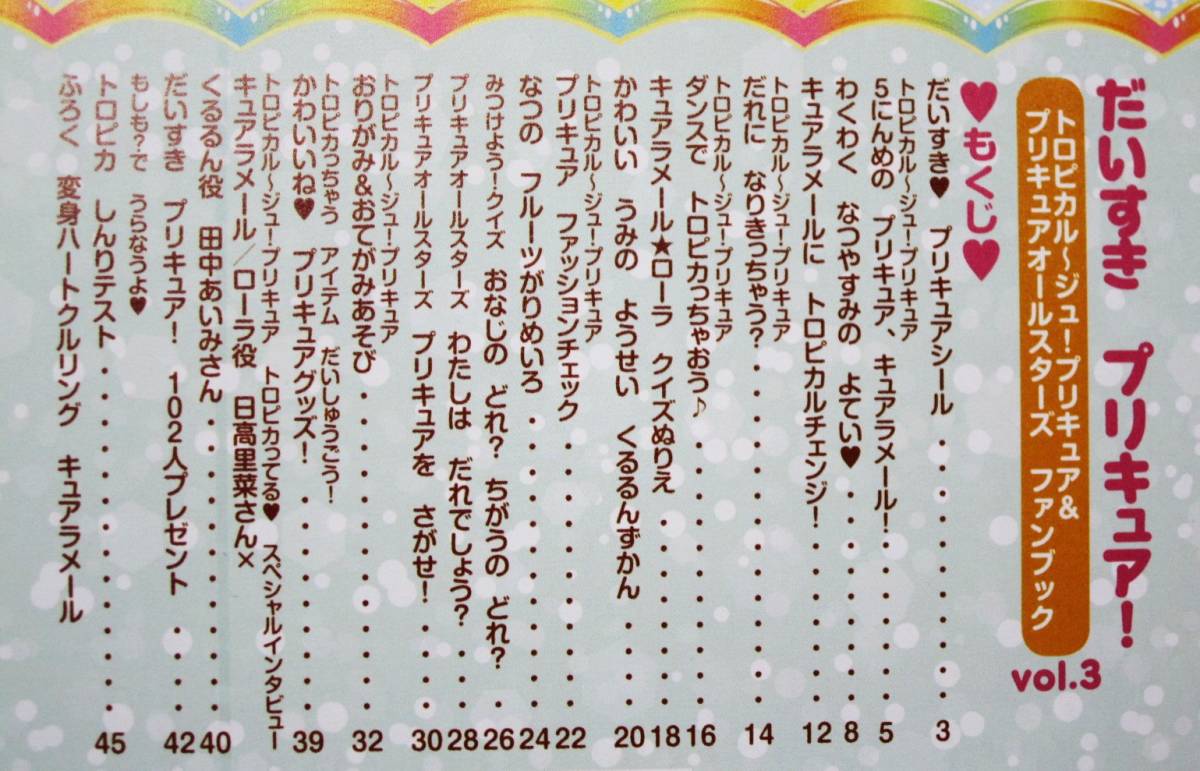 だいすき プリキュア！
トロピカル～ジュ！プリキュア＆
プリキュアオールスターズ ファンブック
vol.3
♥もくじ♥
だいすき♥ プリキュアシール・・・・・・・・・3
トロピカル～ジュ！プリキュア
5にんめの プリキュア、キュアラメール！・・・・・5
わくわく なつやすみの よてい♥・・・・・・・8
キュアラメールに トロピカルチェンジ！・・・・・12
トロピカル～ジュ！プリキュア
だれに なりきっちゃう？・・・・・・・・・・14
トロピカル～ジュ！プリキュア
ダンスで トロピカっちゃおう♪・・・・・・・・16
キュアラメール★ローラ クイズぬりえ・・・・・・18
かわいい うみの ようせい くるるんずかん・・・・20
トロピカル～ジュ！プリキュア
プリキュア ファッションチェック・・・・・・・・22
なつの フルーツがりめいろ・・・・・・・・・24
みつけよう！クイズ おなじの どれ？ ちがうの どれ？・・26
プリキュアオールスターズ わたしは だれでしょう？・・・28
プリキュアオールスターズ プリキュアを さがせ！・・・・30
トロピカル～ジュ！プリキュア
おりがみ＆おてがみあそび・・・・・・・・・・32
トロピカっちゃう アイテム だいしゅうごう！
かわいいいね♥ プリキュアグッズ！・・・・・・・39
トロピカル～ジュ！プリキュア トロピカってる♥ スペシャルインタビュー
キュアラメール／ローラ役 日高里菜さん×
くるるん役 田中あいみさん・・・・・・・・・40
だいすき プリキュア！ 102人プレゼント・・・・42
もしも？で うらなうよ♥
トロピカ しんりテスト・・・・・・・・・・・45
ふろく 変身ハートクルリング キュアラメール